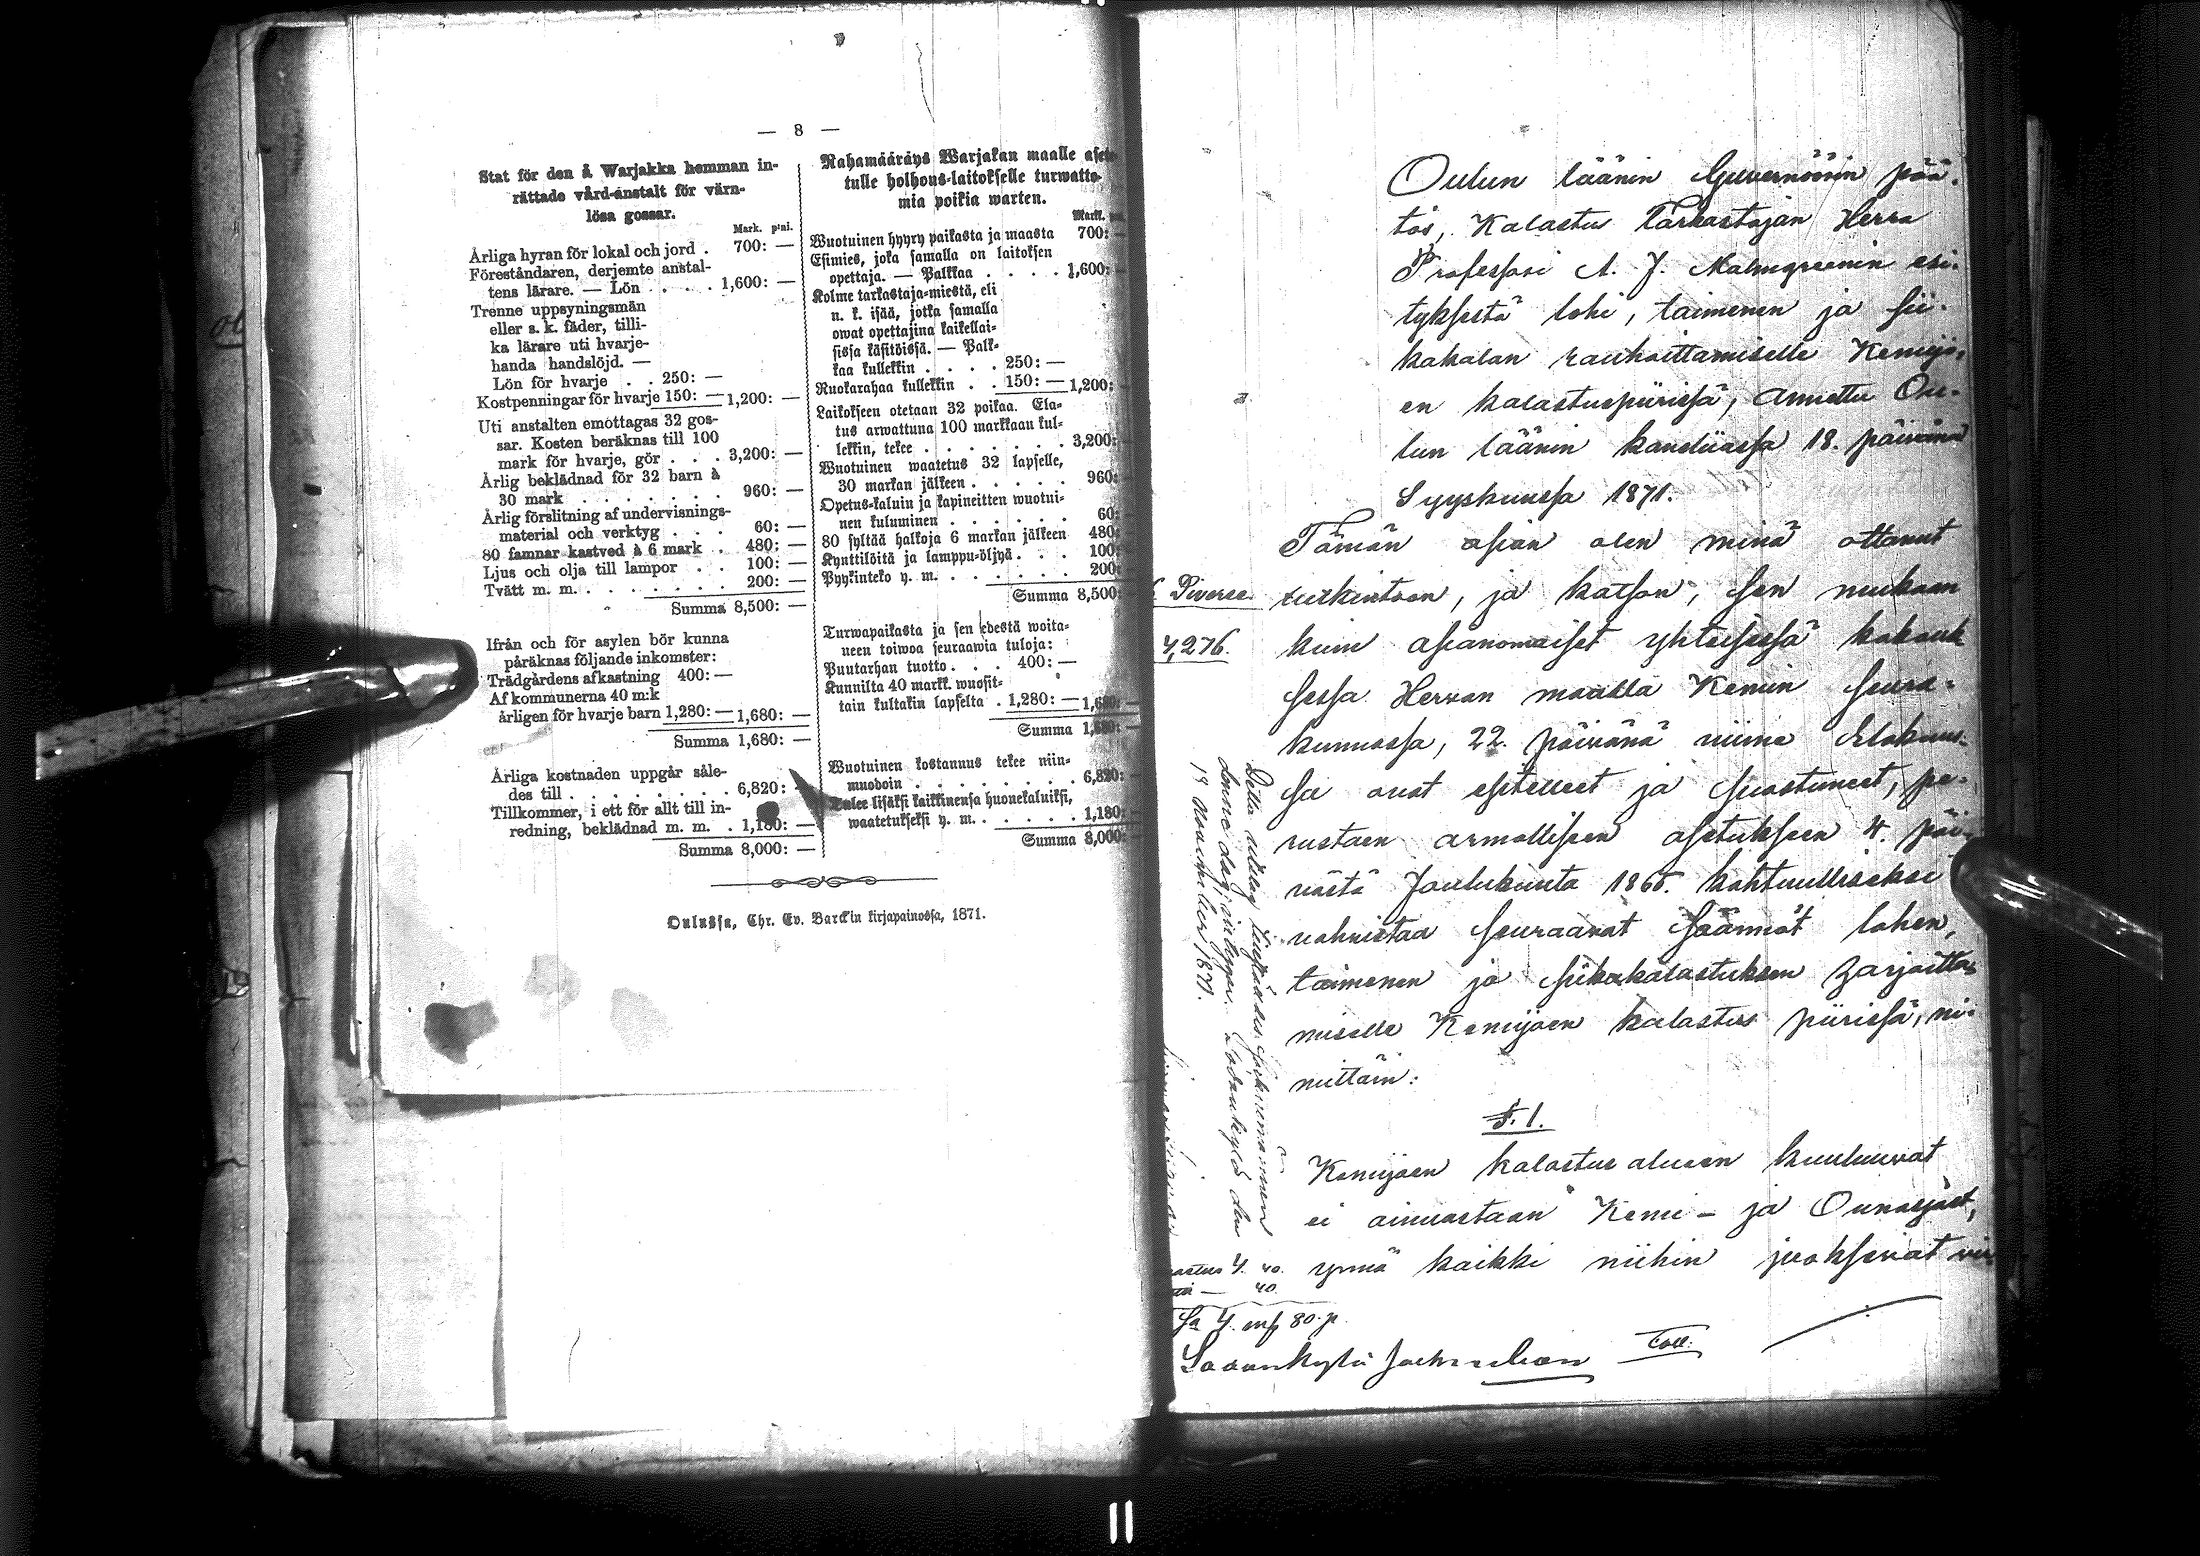 — 8 —
Stat för den å Warjakka hemman in-
rättade vård-anstalt för värn-
lösa gossar.
Mark. p:ni.
Årliga hyran för lokal och jord . 700: —
Föreståndaren, derjemte anstal-
tens lärare. — Lön . . . . 1,600: —
Trenne uppsyningsmän
eller s. k. fäder, tilli-
ka lärare uti hvarje-
handa handslöjd. —
Lön för hvarje . . 250: —
Kostpenningar för hvarje 150: — 1,200: —
Uti anstalten emottagas 32 gos-
sar. Kosten beräknas till 100
mark för hvarje, gör . . . 3,200: —
Årlig beklädnad för 32 barn à
30 mark . . . . . . . 960: —
Årlig förslitning af undervisnings-
material och verktyg . . . 60: —
80 famnar kastved à 6 mark . 480: —
Ljus och olja till lampor . . 100: —
Tvätt m. m. . . . . . . . 200: —
Summa 8,500: —
Ifrån och för asylen bör kunna
påräknas följande inkomster:
Trädgårdens afkastning 400: —
Af kommunerna 40 m:k
årligen för hvarje barn 1,280: — 1,680: —
Summa 1,680: —
Årliga kostnaden uppgår såle-
des till . . . . . . . . 6,820: —
Tillkommer, i ett för allt till in-
redning, beklädnad m. m. . 1,180: —
Summa 8,000: —
Rahamääräys Warjakan maalle ase-
tulle holhous-laitokselle turwatto-
mia poikia warten.
Markk.
Wuotuinen hyyry paikasta ja maasta 700: —
Esimies, joka samalla on laitoksen
opettaja. — Palkkaa . . . . 1,600: —
Kolme tarkastaja-miestä, eli
n. k. isää, jotka samalla
owat opettajina kaikellai-
sissa käsitöissä. — Palk-
kaa kullekkin . . . . 250: —
Ruokarahaa kullekkin . . 150: — 1,200: —
Laitokseen otetaan 32 poikaa. Ela-
tus arwattuna 100 markkaan kul-
lekkin, tekee . . . . . . 3,200:
Wuotuinen waatetus 32 lapselle,
30 markan jälkeen . . . . . 960:
Opetus-kaluin ja kapineitten wuotui-
nen kuluminen . . . . . . 60:
80 syltää halkoja 6 markan jälkeen 480:
Kynttilöitä ja lamppu-öljyä . . . 100:
Pyykinteko y. m. . . . . . . 200:
Summa 8,500:
Turwapaikasta ja sen edestä woita-
neen toiwoa seuraawia tuloja:
Puutarhan tuotto . . . 400: —
Kunnilta 40 markk. wuosit-
tain kultakin lapselta . 1,280: — 1,680: —
Summa 1,680: —
Wuotuinen kostannus tekee niin-
muodoin . . . . . . . . 6,820:
Tulee lisäksi kaikkinensa huonekaluiksi,
waatetukseksi y. m. . . . . . 1,180:
Summa 8,000:
Oulussa, Chr. Ev. Barckin kirjapainossa, 1871.
Oulun läänin Guvernöörin pää-
tös, Kalastus Tarkastajan Herra
Professori A. J. Malmgreenin esi-
tyksestä lohi, taimenen ja sii-
kakalan rauhoittamiselle Kemijo-
en kalastuspiirissä; Annettu Ou-
lun läänin kansliassa 18. päivänä
Syyskuussa 1871.
Tämän asian olen minä ottanut
tutkintoon, ja katson, sen mukaan
kuin asianomaiset yhteisessä kokouk
sessa Hervan maalla Kemin seura-
kunnassa, 22. päivänä viime Elokuus-
sa ovat esitelleet ja suostuneet, pe-
rustaen armolliseen asetukseen 4. päi-
västä Joulukuuta 1865. kohtuulliseksi
vahvistaa seuraavat säännöt lohen,
taimenen ja siikakalastuksen harjoitta-
miselle Kemijoen kalastus piirissä, ni-
mittäin:
§. 1.
Kemijoen kalastus alueen kuuluuvat
ei ainuastaan Kemi- ja Ounasjoet,
ynnä kaikki niihin juoksevat
Diverse.
4,276.
denne dag
19 November 1871.
4. 40.
40.
Sa 4. mk 80. p.
Coll.